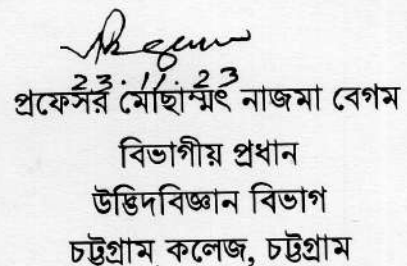 23.11.23
প্রফেসর মোছাম্মৎ নাজমা বেগম
বিভাগীয় প্রধান
উদ্ভিদবিজ্ঞান বিভাগ
চট্টগ্রাম কলেজ, চট্টগ্রাম